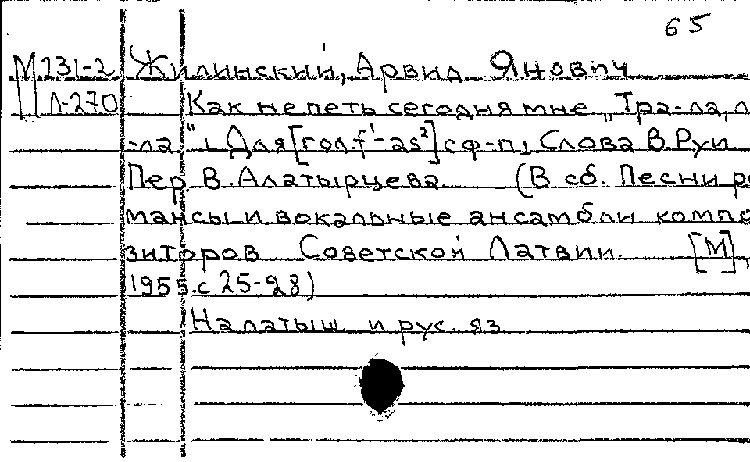 65
М 231-2 Жилинский, Арвид Янович
Л-270 Как не петь сегодня мне „Тра-ла, л
-ла". Для [гол. f¹-as²] с ф-п, Слова В. Руи
Пер. В. Алатырцева. (В сб. Песни ро
мансы и вокальные ансамбли компо
зиторов Советской Латвии. [М],
1955. с 25-28)
На латыш. и рус. яз.